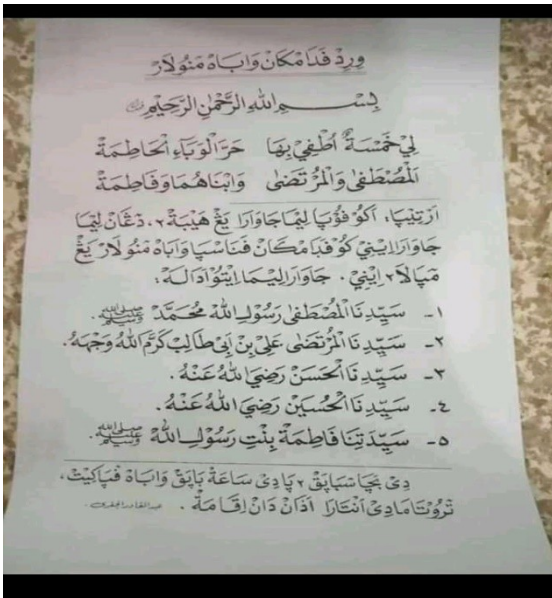 ورد فدامكان واباه منولار
بِسْمِ اللهِ الرَّحْمٰنِ الرَّحِيْمِ
لِيْ خَمْسَةٌ أُطْفِيْ بِهَا حَرَّ الْوَبَاءِ الْحَاطِمَةْ
الْمُصْطَفٰى وَالْمُرْتَضٰى وَابْنَاهُمَا وَفَاطِمَةْ
ارتيڽا، اكو فوڽا ليما جاوارا يڠ هيبة٢، دڠان ليما
جاوارا ايني كو فدامكان فناسڽا واباه منولار يڠ
مڽالا٢ ايني. جاوارا ليما ايتو اداله:
١- سَيِّدِنَا الْمُصْطَفٰى رَسُوْلِ اللهِ مُحَمَّدْ ﷺ.
٢- سَيِّدِنَا الْمُرْتَضٰى عَلِيْ بِنْ بِيْ طَالِبْ كَرَّمَ اللهُ وَجْهَهُ.
٣- سَيِّدِنَا الْحَسَنْ رَضِيَ اللهُ عَنْهُ.
٤- سَيِّدِنَا الْحُسَيْن رَضِيَ اللهُ عَنْهُ.
٥- سَيِّدَتِنَا فَاطِمَةْ بِنْتِ رَسُوْلِ اللهْ ﷺ.
دي بچا سباپق٢ پا دي ساعة باپق واباه فپاكيت،
تروتاما دي انتارا اذان دان اقامة. عبد القادر الجفري